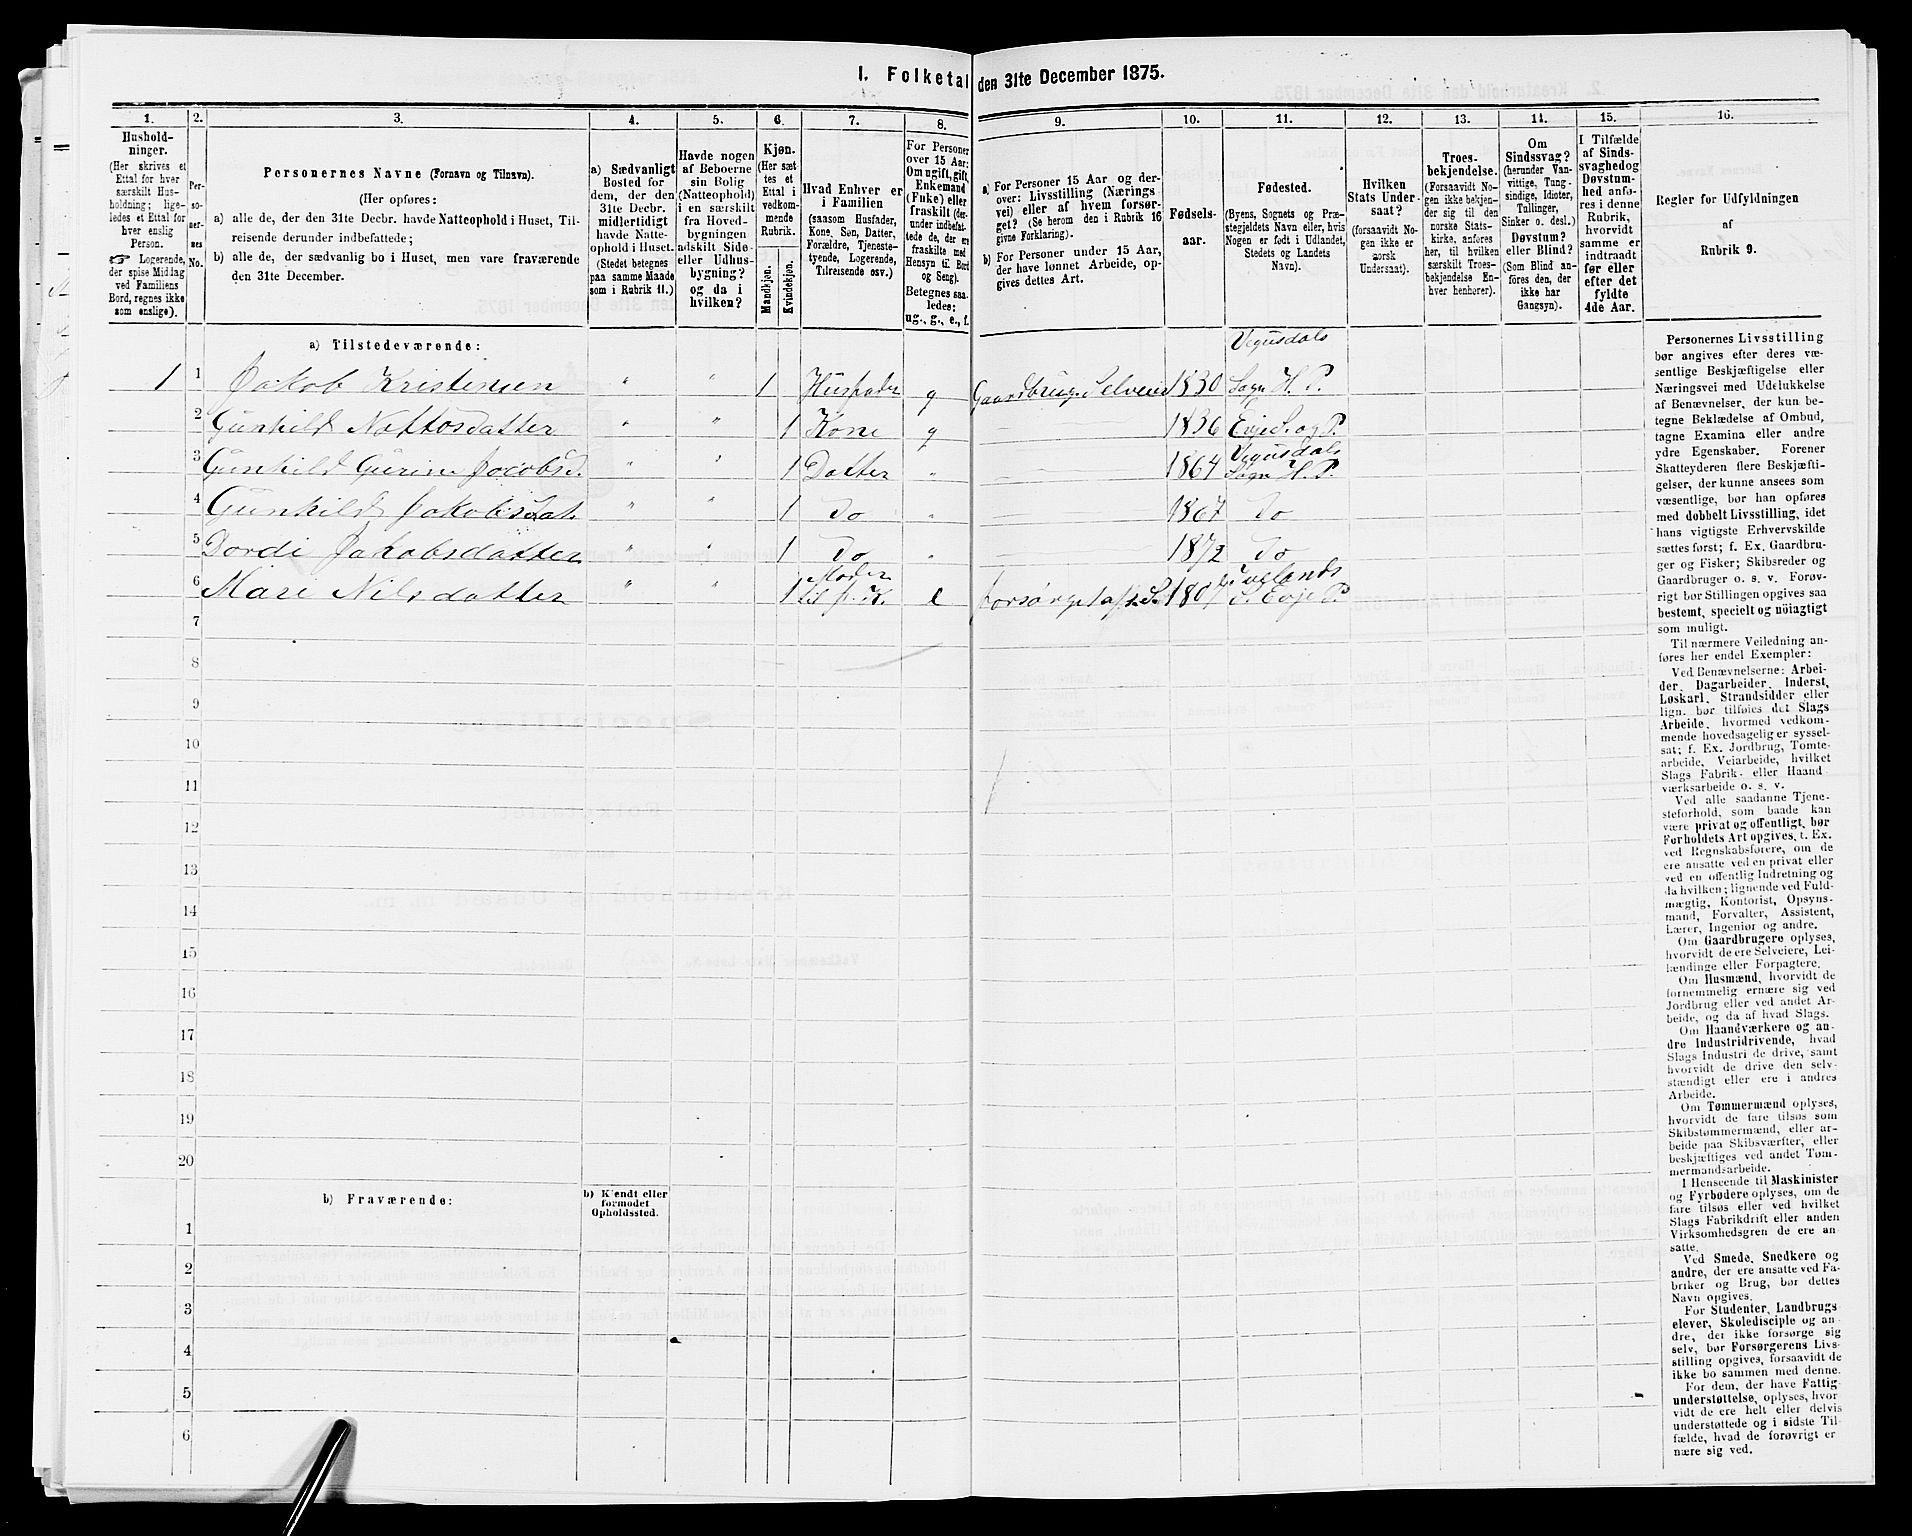 I. Folketal den 31te December 1875.
1. 2. 3. 4. 5. 6. 7. 8. 9. 10. 11. 12. 13. 14. 15. 16.
Hushold-
ninger.
(Her skrives et
Ettal for hver
særskilt Hus-
holdning; lige-
ledes et Ettal for
hver enslig
Person.
☞ Logerende,
der spise Middag
ved Familiens
Bord, regnes ikke
som enslige).
Per-
so-
ner-
nes
No.
Personernes Navne (Fornavn og Tilnavn).
(Her opføres:
a) alle de, der den 31te Decbr. havde Natteophold i Huset, Til-
reisende derunder indbefattede;
b) alle de, der sædvanlig bo i Huset, men vare fraværende
den 31te December.
a) Sædvanligt
Bosted for
dem, der den
31te Decbr.
midlertidigt
havde Natte-
ophold i Huset.
(Stedet betegnes
paa samme Maade
som i Rubrik 11.)
Havde nogen
af Beboerne
sin Bolig
(Natteophold)
i en særskilt
fra Hoved-
bygningen
adskilt Side-
eller Udhus-
bygning?
og da i
hvilken?
Kjøn.
(Her sæt-
tes et
Ettal i
vedkom-
mende
Rubrik.
Mandkjøn.
Kvindekjøn.
Hvad Enhver er
i Familien
(saasom Husfader,
Kone, Søn, Datter,
Forældre, Tjeneste-
tyende, Logerende,
Tilreisende osv.)
For Personer
over 15 Aar:
Om ugift, gift,
Enkemand
(Enke) eller
fraskilt (der-
under indbefat-
tede de, der ere
fraskilte med
Hensyn til Bord
og Seng).
Betegnes saa-
ledes:
ug., g., e., f.
a) For Personer 15 Aar og der-
over: Livsstilling (Nærings-
vei) eller af hvem forsør-
get? (Se herom den i Rubrik 16
givne Forklaring).
b) For Personer under 15 Aar,
der have lønnet Arbeide, op-
gives dettes Art.
Fødsels-
aar.
Fødested.
(Byens, Sognets og Præ-
stegjeldets Navn eller, hvis
Nogen er født i Udlandet,
Stedets og Landets
Navn).
Hvilken
Stats Under-
saat?
(forsaavidt No-
gen ikke er
norsk
Undersaat).
Troes-
bekjendelse.
(Forsaavidt No-
gen ikke bekjen-
der sig til den
norske Stats-
kirke, anføres
her, til hvilken
særskilt Troes-
bekjendelse En-
hver henhører).
Om
Sindssvag?
(herunder Van-
vittige, Tung-
sindige, Idioter,
Tullinger,
Sinker o. desl.)
Døvstum?
eller Blind?
(Som Blind an-
føres den, der
ikke har
Gangsyn).
I Tilfælde
af Sinds-
svaghed og
Døvstum-
hed anfø-
res i denne
Rubrik,
hvorvidt
samme er
indtraadt
før eller
efter det
fyldte
4de Aar.
Regler for Udfyldningen
af
Rubrik 9.
a) Tilstedeværende:
1 1 Jakob Kristensen " " 1 Husfader g Gaardbrug. Selveier 1830 Vegusdals Sogn H. P.
2 Gunhild Nottosdatter " " 1 Kone g 1836 Evje S. og P.
3 Gunhild Gurine Jacobsd. " " 1 Datter " 1864 Vegusdals Sogn H. P.
4 Gunhild Jakobsdat. " " 1 Do " 1867 Do
5 Dordi Jakobsdatter " " 1 Do " 1872 Do
6 Mari Nilsdatter " " 1 Moder til J. K. e forsørget af s. S. Ivelands S. Evje P.
7
8
9
10
11
12
13
14
15
16
17
18
19
20
b) Fraværende:
b) Kjendt eller
formodet
Opholdssted.
1
2
3
4
5
6
Personernes Livsstilling
bør angives efter deres væ-
sentlige Beskjæftigelse eller
Næringsvei med Udelukkelse
af Benævnelser, der kun be-
tegne Beklædelse af Ombud,
tagne Examina eller andre
ydre Egenskaber. Forener
Skatteyderen flere Beskjæfti-
gelser, der kunne ansees som
væsentlige, bør han opføres
med dobbelt Livsstilling, idet
hans vigtigste Erhvervskilde
sættes først; f. Ex. Gaardbru-
ger og Fisker; Skibsreder og
Gaardbruger o. s. v. Forøv-
rigt bør Stillingen opgives saa
bestemt, specielt og nöiagtigt
som muligt.
Til nærmere Veiledning an-
føres her endel Exempler:
Ved Benævnelserne: Arbei-
der, Dagarbeider, Inderst,
Løskarl, Strandsidder eller
lign. bør tilføies det Slags
Arbeide, hvormed vedkom-
mende hovedsagelig er syssel-
sat; f. Ex. Jordbrug, Tomte-
arbeide, Veiarbeide, hvilket
Slags Fabrik- eller Haand
værksarbeide o. s. v.
Ved alle saadanne Tjene-
steforhold, som baade kan
være privat og offentligt, bør
Forholdets Art opgives, t. Ex.
ved Regnskabsførere, om de
ere ansatte ved en privat eller
ved en offentlig Indretning og
da hvilken; lignende ved Fuld-
mægtig, Kontorist, Opsyns-
mand, Forvalter, Assistent,
Lærer, Ingeniør og andre.
Om Gaardbrugere oplyses,
hvorvidt de ere Selveiere, Lei-
lændinge eller Forpagtere.
Om Husmænd, hvorvidt de
fornemmelig ernære sig ved
Jordbrug eller ved andet Ar-
beide, og da af hvad Slags.
Om Haandværkere og an-
dre Industridrivende, hvad
Slags Industri de drive, samt
hvorvidt de drive den selv-
stændigt eller ere i andres
Arbeide.
Om Tømmermænd oplyses,
hvorvidt de fare tilsøs som
Skibstømmermænd, eller ar-
beide paa Skibsværfter, eller
beskjæftiges ved andet Tøm-
mermandsarbeide.
I Henseende til Maskinister
og Fyrbødere oplyses, om de
fare tilsøs eller ved hvilket
Slags Fabrikdrift eller anden
Virksomhedsgren de ere an-
satte.
Ved Smede, Snedkere og
andre, der ere ansatte ved Fa-
briker og Brug, bør dettes
Navn opgives.
For Studenter, Landbrugs
elever, Skolediscipler og an-
dre, der ikke forsørge sig
selv, bør Forsørgerens Livs-
stilling opgives, forsaavidt de
ikke bo sammen med denne.
For dem, der have Fattig-
understøttelse, oplyses, hvor
vidt de ere helt eller delvis
understøttede og i sidste Til-
fælde, hvad de forøvrigt er
nære sig ved.